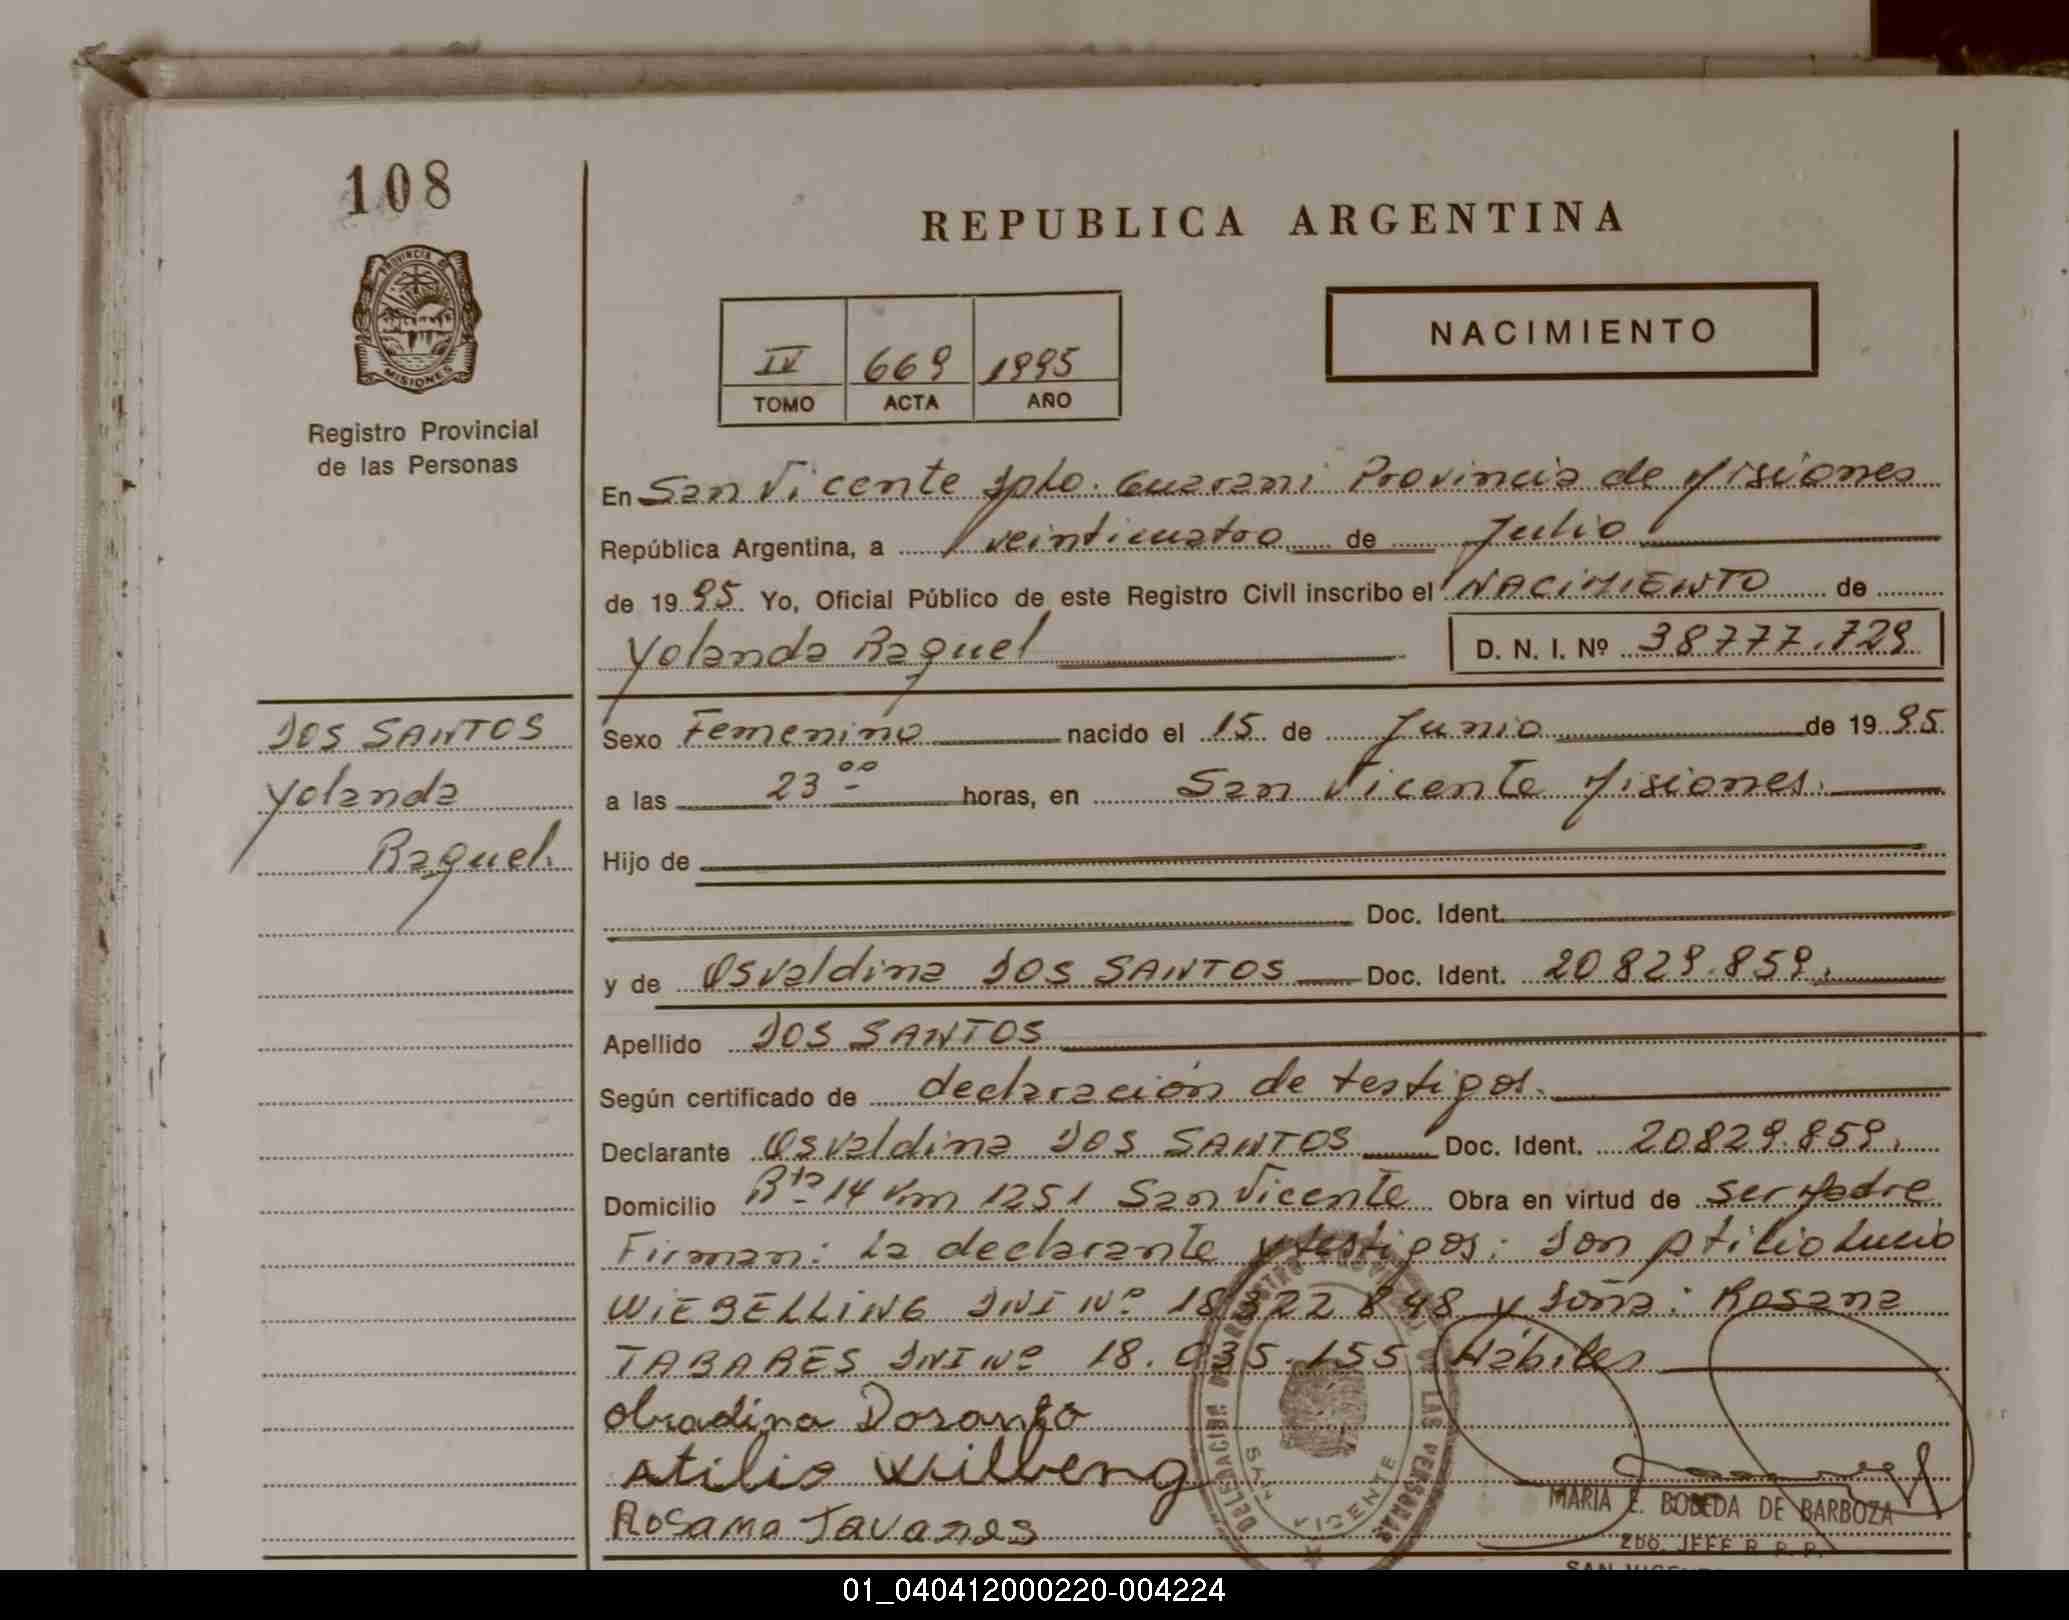 108
PROVINCIA DE
MISIONES
Registro Provincial
de las Personas
REPUBLICA ARGENTINA
NACIMIENTO
IV 669 1995
TOMO ACTA AÑO
En San Vicente Dpto. Guarani Provincia de Misiones
República Argentina, a veinticuatro de Julio
de 1995. Yo, Oficial Público de este Registro Civil inscribo el NACIMIENTO de
Yolanda Raquel D. N. I. Nº 38777.729
DOS SANTOS
Yolanda
Raquel.
Sexo Femenino nacido el 15 de Junio de 1995.
a las 23 ºº horas, en San Vicente Misiones.
Hijo de
Doc. Ident.
y de Osvaldina DOS SANTOS Doc. Ident. 20829.859.
Apellido DOS SANTOS
Según certificado de declaración de testigos.
Declarante Osvaldina DOS SANTOS Doc. Ident. 20829.859.
Domicilio Rta 14 Km 1251 San Vicente Obra en virtud de ser Madre
Firman: La declarante y testigos: Don Atilio Lucio
WIEBELLING DNI Nº 18322848 y Doña: Rosana
TABARES DNI Nº 18.035.155 Hábiles
Atilio
Rosana Tavares
DELEGACION DEL REGISTRO DE LAS PERSONAS
SAN VICENTE
MARIA E. BOBEDA DE BARBOZA
2DO. JEFE R. P. P.
01_040412000220-004224